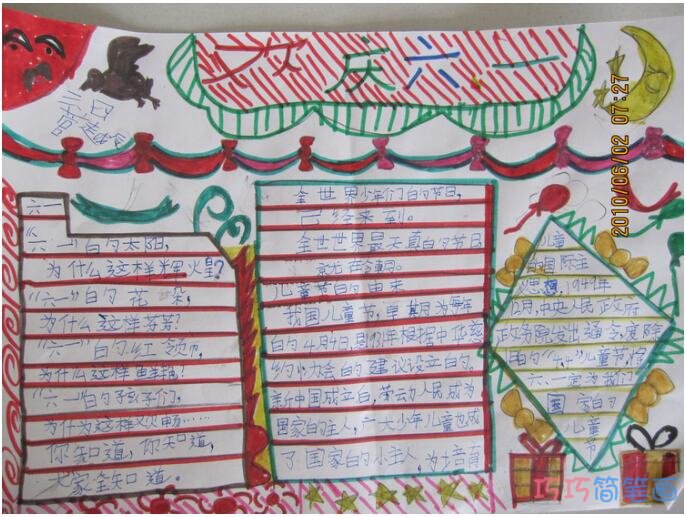 欢庆六.一
2010/06/02 07:27
六一
"六一"的太阳,
为什么这样辉煌?
"六一"的花朵,
为什么这样芬芳?
"六一"的红领巾,
为什么这样鲜艳?
"六一"的孩子们,
为什为这样欢畅……
你知道,你知道,
大家全知道。
全世界少年们的节日,
已经来到。
全世界最天真的节日
就在今朝。
儿童节的由来
我国儿童节,早期为每年
的4月4日,是1931年根据中华慈
幼协会的建议设立的。
新中国成立后,劳动人民成为
国家的主人,广大少年儿童也成
了国家的小主人,为培育
儿童
的国际主
义思想,1949年
12月,中央人民政府
政务院发出通令废除
旧的"4.4"儿童节,将
六、一定为我们
国家的
儿童
节
巧巧简笔画